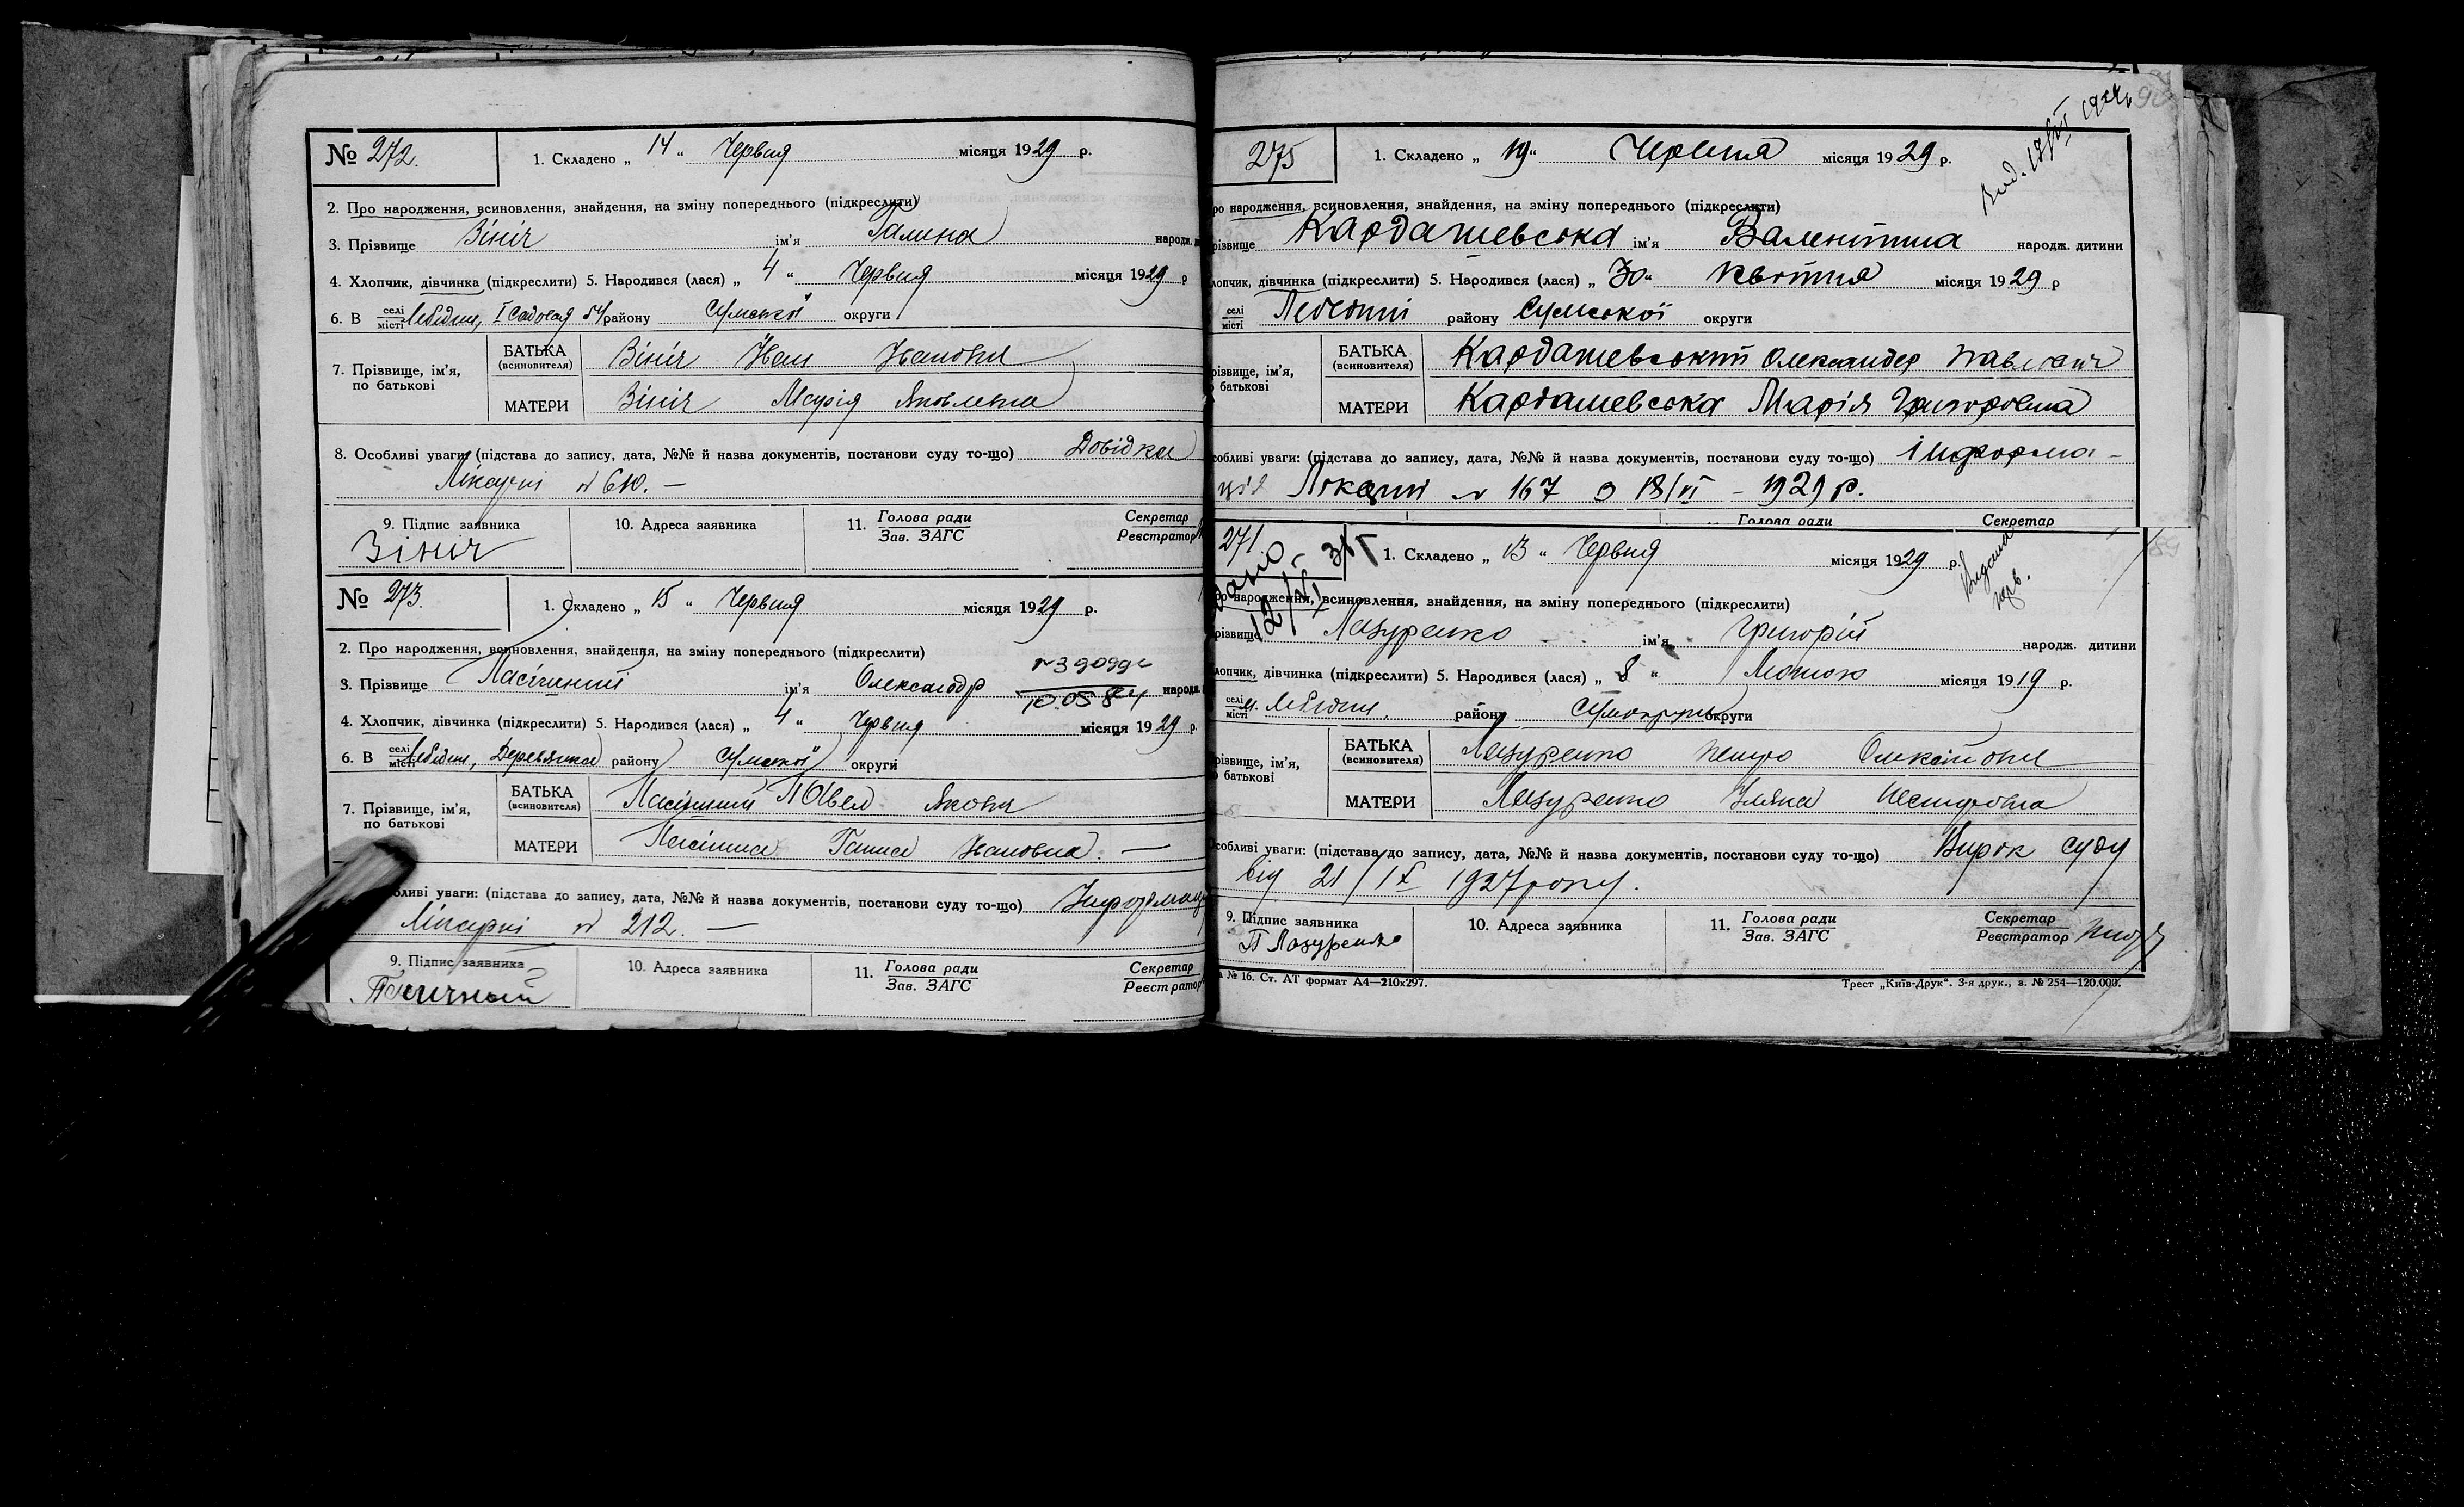 № 272. 1. Складено „ 14 “ Червня місяця 1929 р.
2. Про народження, всиновлення, знайдення, на зміну попереднього (підкреслити)
3. Прізвище Вініг ім'я Галина народж.
4. Хлопчик, дівчинка (підкреслити) 5. Народився (лася) „ 4 “ Червня місяця 1929 р
6. В селі місті Лебедин, I Садовая 54 району Сумської округи
7. Прізвище, ім'я, по батькові
БАТЬКА (всиновителя) Вініг Іван Іванович
МАТЕРИ Вініг Марія Яковлевна
8. Особливі уваги: (підстава до запису, дата, №№ й назва документів, постанови суду то-що) Довідка
Лікарні №
9. Підпис заявника 10. Адреса заявника 11. Голова ради Зав. ЗАГС Секретар Реєстратор
Вініг
№ 273. 1. Складено „ 15 “ Червня місяця 1929 р.
2. Про народження, всиновлення, знайдення, на зміну попереднього (підкреслити)
3. Прізвище Пасічний ім'я Олександр народж.
10.05.84
4. Хлопчик, дівчинка (підкреслити) 5. Народився (лася) „ 4 “ Червня місяця 1929 р.
6. В селі місті Лебедин, Деревянка району Сумської округи
7. Прізвище, ім'я, по батькові
БАТЬКА (всиновителя) Пасічний Павел Якович
МАТЕРИ Пасічна Ганна Івановна. —
Особливі уваги: (підстава до запису, дата, №№ й назва документів, постанови суду то-що) Інформац
Лікарні № 212. —
9. Підпис заявника 10. Адреса заявника 11. Голова ради Зав. ЗАГС Секретар Реєстратор
Пасичный
275 1. Складено „ 19 “ Червня місяця 1929 р.
ро народження, всиновлення, знайдення, на зміну попереднього (підкреслити)
різвище Кардашевська ім'я Валентина народж. дитини
лопчик, дівчинка (підкреслити) 5. Народився (лася) „ 30 “ квітня місяця 1929 р
селі місті району Сумської округи
різвище, ім'я, батькові
БАТЬКА (всиновителя) Кардашевський Олександер Павлович
МАТЕРИ Кардашевська Марія Григоровна
собливі уваги: (підстава до запису, дата, №№ й назва документів, постанови суду то-що) Інформа-
ція Лікарні № 167 з 18/VI – 1929 р.
Голова ради Секретар
271 1. Складено „ 13 “ Червня місяця 1929 р.
12/VI
Видана
ро народження, всиновлення, знайдення, на зміну попереднього (підкреслити)
різвище Лазуренко ім'я Григорій народж. дитини
лопчик, дівчинка (підкреслити) 5. Народився (лася) „ 8 “ Лютого місяця 1919 р.
селі місті м. Лебедин, району Сумокруги округи
різвище, ім'я, батькові
БАТЬКА (всиновителя) Лазуренко Петро Олексійович
МАТЕРИ Лазуренко Уляна Несторовна
Особливі уваги: (підстава до запису, дата, №№ й назва документів, постанови суду то-що) Вирок суду
від 21/IX 1927 року.
9. Підпис заявника 10. Адреса заявника 11. Голова ради Зав. ЗАГС Секретар Реєстратор
П Лазуренко
№ 16. Ст. АТ формат А4—210х297. Трест „Київ-Друк“. 3-я друк., з. № 254—120.000.